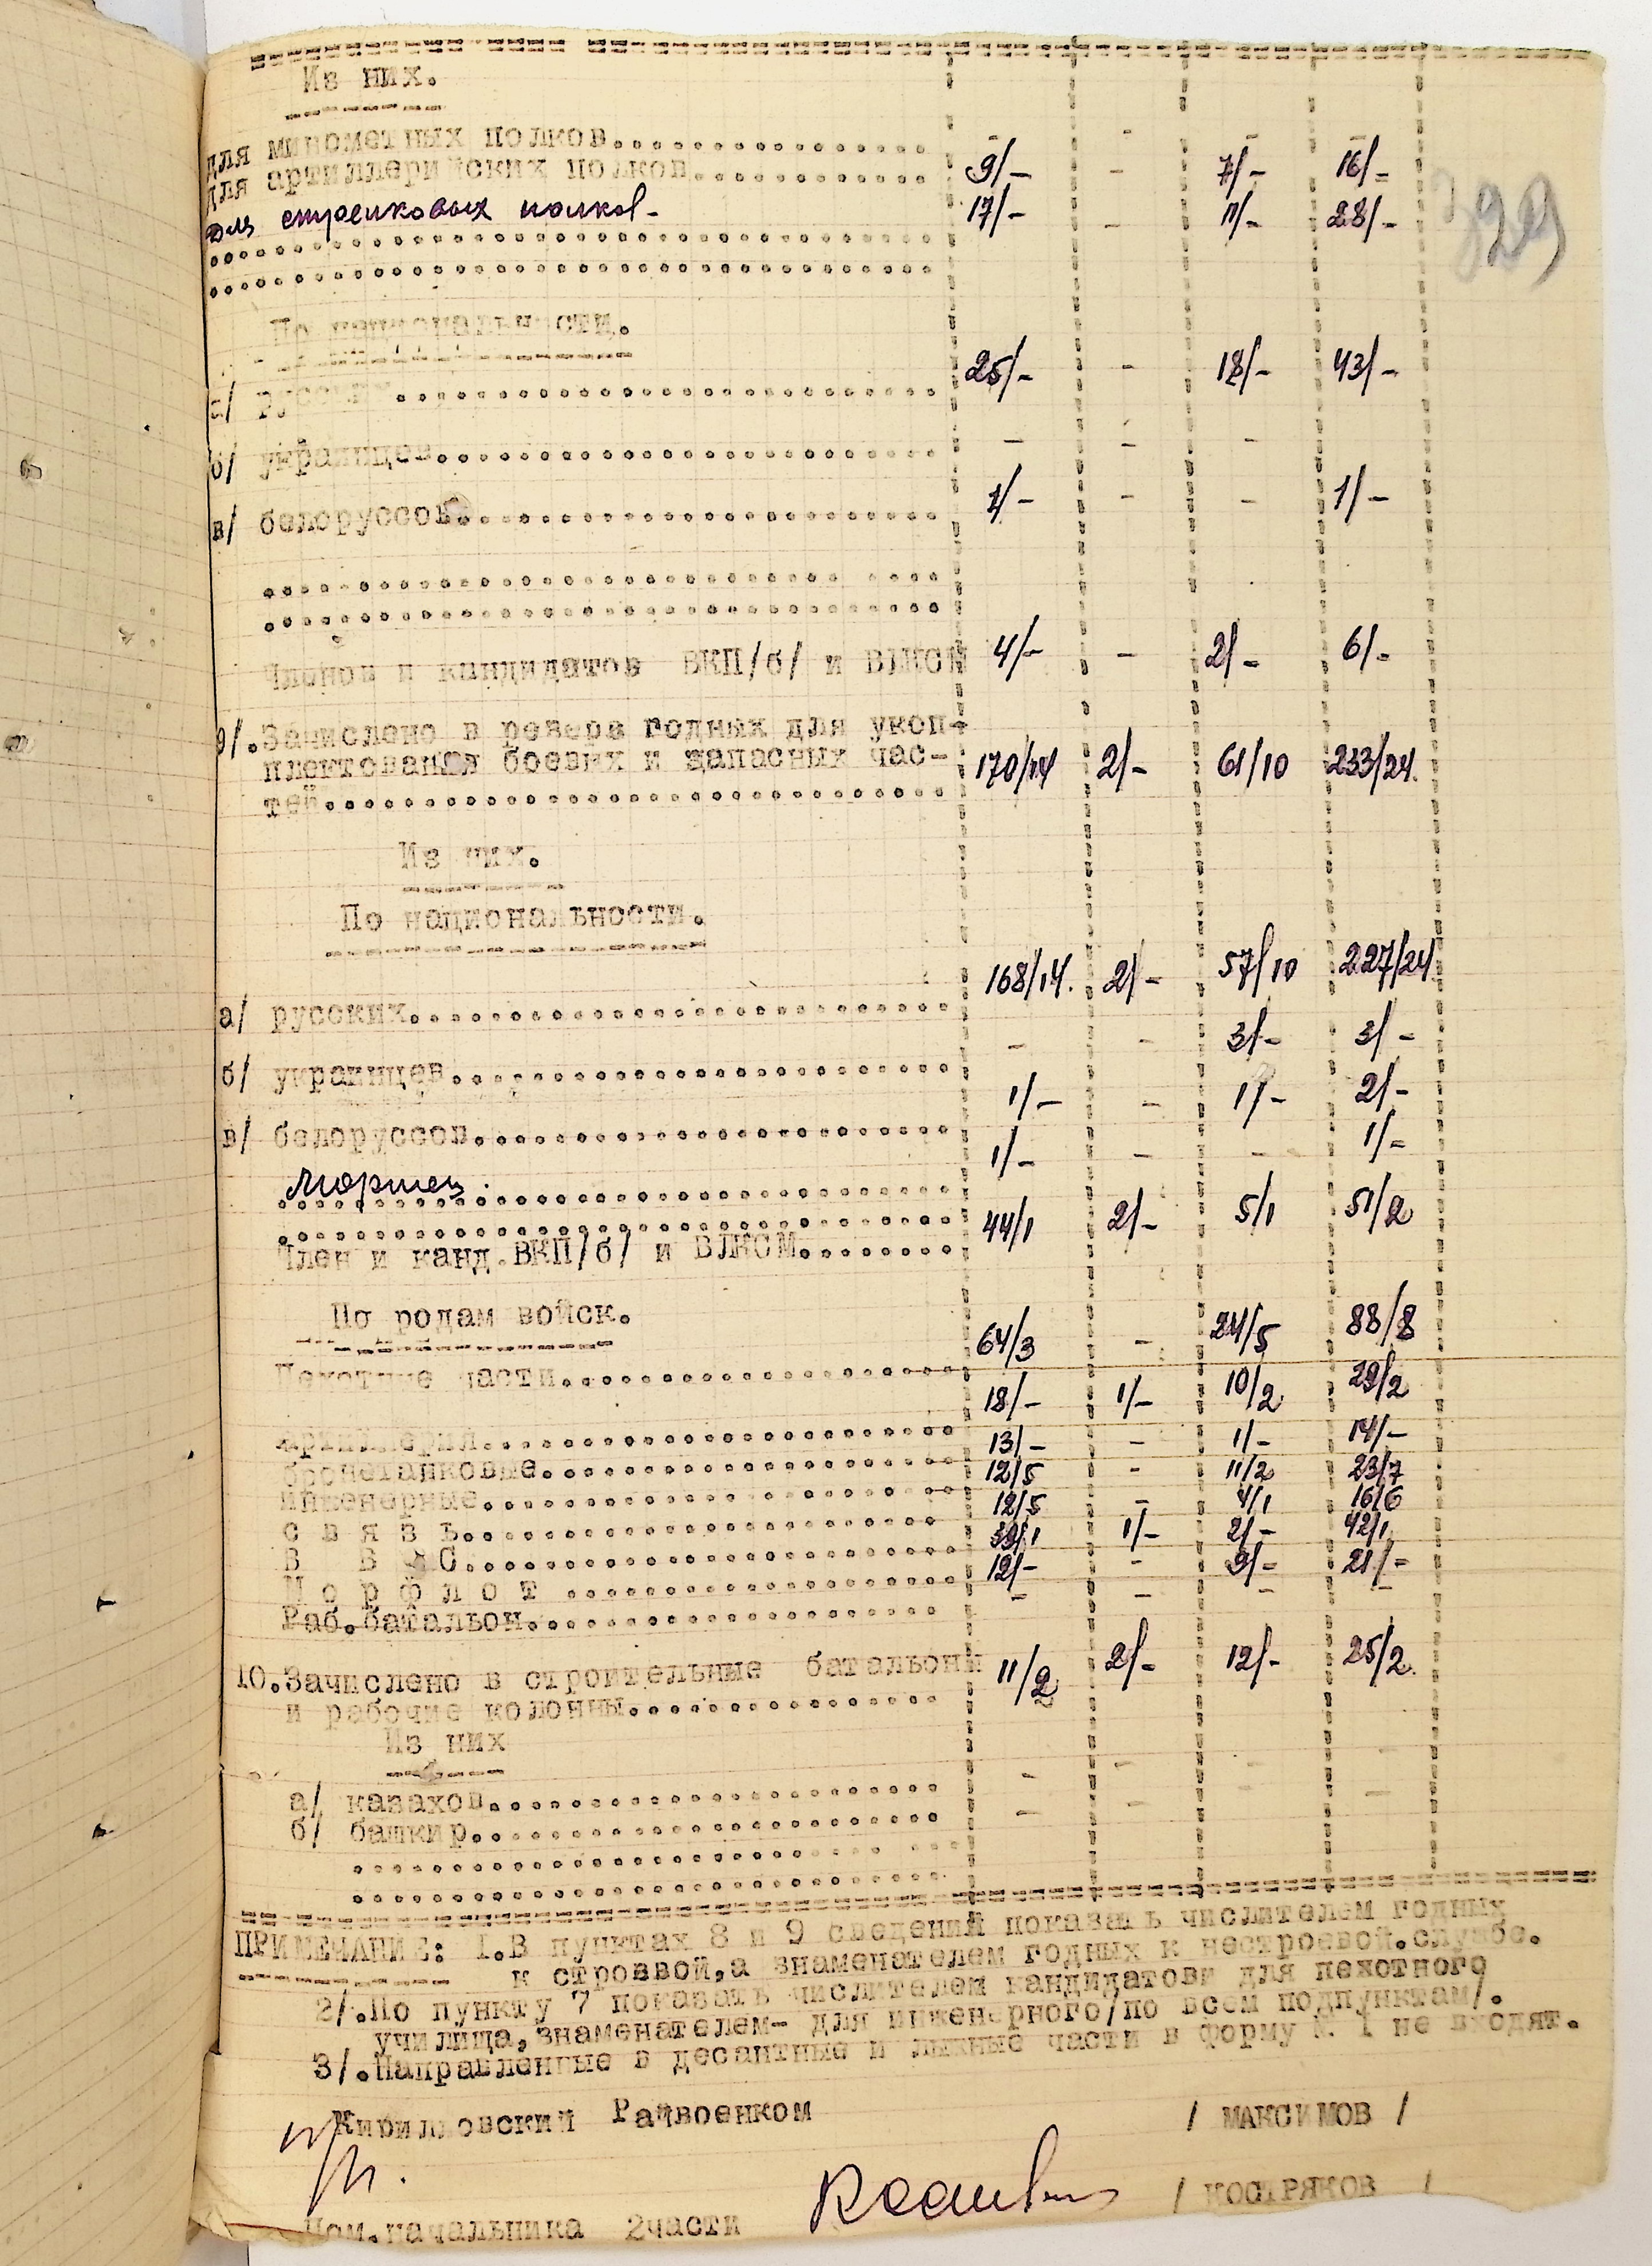 Из них.
для минометных полков.................... - - - -
для артиллерийских полков................ 9/- - 7/- 16/-
для стрелковых полков- 17/- - 11/- 28/-
329
По национальности.
а/ русских................ 25/- - 18/- 43/-
б/ украинцев................ - - -
в/ белоруссов................ 1/- - - 1/-
Членов и кандидатов ВКП/б/ и ВЛКСМ 4/- - 2/- 6/-
9/.Зачислено в резерв годных для уком-
плектования боевых и запасных час- 170/14 2/- 61/10 233/24.
тей................
Из них.
По национальности.
а/ русских................ 168/14. 2/- 57/10 227/24
б/ украинцев................ - - 3/- 3/-
в/ белоруссов................ 1/- - 1/- 2/-
1/- - - 1/-
Член и канд.ВКП/б/ и ВЛКСМ........ 44/1 2/- 5/1 51/2
По родам войск.
Пехотные части................ 64/3 - 24/5 88/8
артиллерия................ 18/- 1/- 10/2 29/2
бронетанковые................ 13/- - 1/- 14/-
инженерные................ 12/5 - 11/2 23/7
с в я з ь................ 12/5 - 4/1 16/6
В В С................ 39/1 1/- 2/- 42/1
М о р ф л о т ................ 12/- - 9/- 21/-
Раб.батальон................ - - - -
10.Зачислено в строительные батальоны 11/2 2/- 12/- 25/2.
и рабочие колонны................
Из них
а/ казахов................ - - - -
б/ башкир................ - - - -
ПРИМЕЧАНИЕ: I.В пунктах 8 и 9 сведений показать числителем годных
к строевой,а знаменателем годных к нестроевой.службе.
2/.По пункту 7 показать числителем кандидатовв для пехотного
училища,знаменателем- для инженерного/по всем подпунктам/.
3/.Направленные в десантные и лыжные части в форму № 1 не входят.
Кирилловский Райвоенком / МАКСИМОВ /
Пом.начальника 2части / КОСТРЯКОВ /